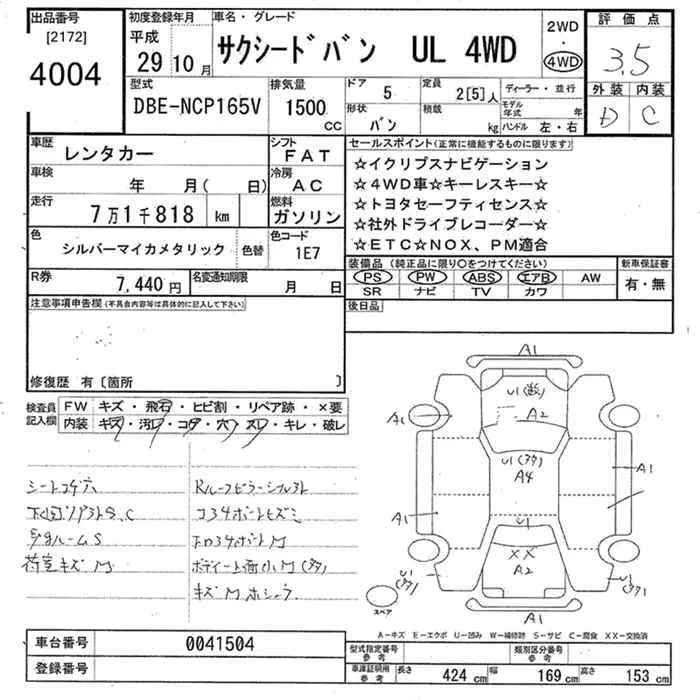 出品番号
[2172]
4004
初度登録年月
平成
29 10 月
車名・グレード
サクシードバン UL 4WD
2WD
・
4WD
評価点
3.5
外装 内装
D C
型式
DBE-NCP165V
排気量
1500
CC
ドア
5
形状
バン
定員
2[5]人
積載
kg
ディーラー・並行
モデル年式 年
ハンドル 左・右
車歴
レンタカー
シフト
FAT
車検
年 月( 日)
冷房
AC
走行
7万1千818 km
燃料
ガソリン
色
シルバーマイカメタリック
色替
色コード
1E7
R券
7,440円
名変通知期限
月 日
セールスポイント(正常に機能するものに限ります)
☆イクリプスナビゲーション
☆4WD車☆キーレスキー☆
☆トヨタセーフティセンス☆
☆社外ドライブレコーダー☆
☆ETC☆NOX、PM適合
装備品(純正品に限り○をつけてください)
PS PW ABS エアB AW
SR ナビ TV カワ
新車保証書
有・無
後日品
注意事項申告欄(不具合内容等は具体的に記入して下さい)
修復歴 有〔箇所 〕
検査員記入欄
FW キズ・飛石・ヒビ割・リペア跡・×要
内装 キズ・汚レ・コゲ・穴・スレ・キレ・破レ
シートコゲ穴
荷室キズM
A1
U1(数)
A2
A1
U1(多)
A4
A1
A1
U1
XX
A2
U1
(多)
U1
(多)
A1
スペア
A-キズ E-エクボ U-凹み W-補修跡 S-サビ C-腐食 XX-交換済
車台番号
0041504
登録番号
型式指定番号
参考
類別区分番号
参考
車庫証明用
参考
長さ 424 cm 幅 169 cm 高さ 153 cm